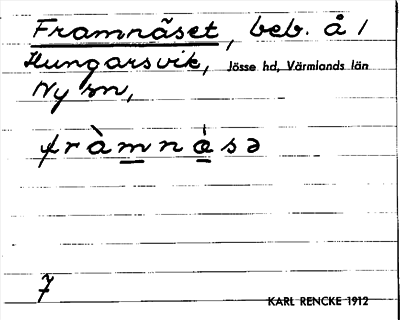 Framnäset, beb. å 1
Hungarsvik, Jösse hd, Värmlands län
Ny sn,
fràmnàsə
7
KARL RENCKE 1912